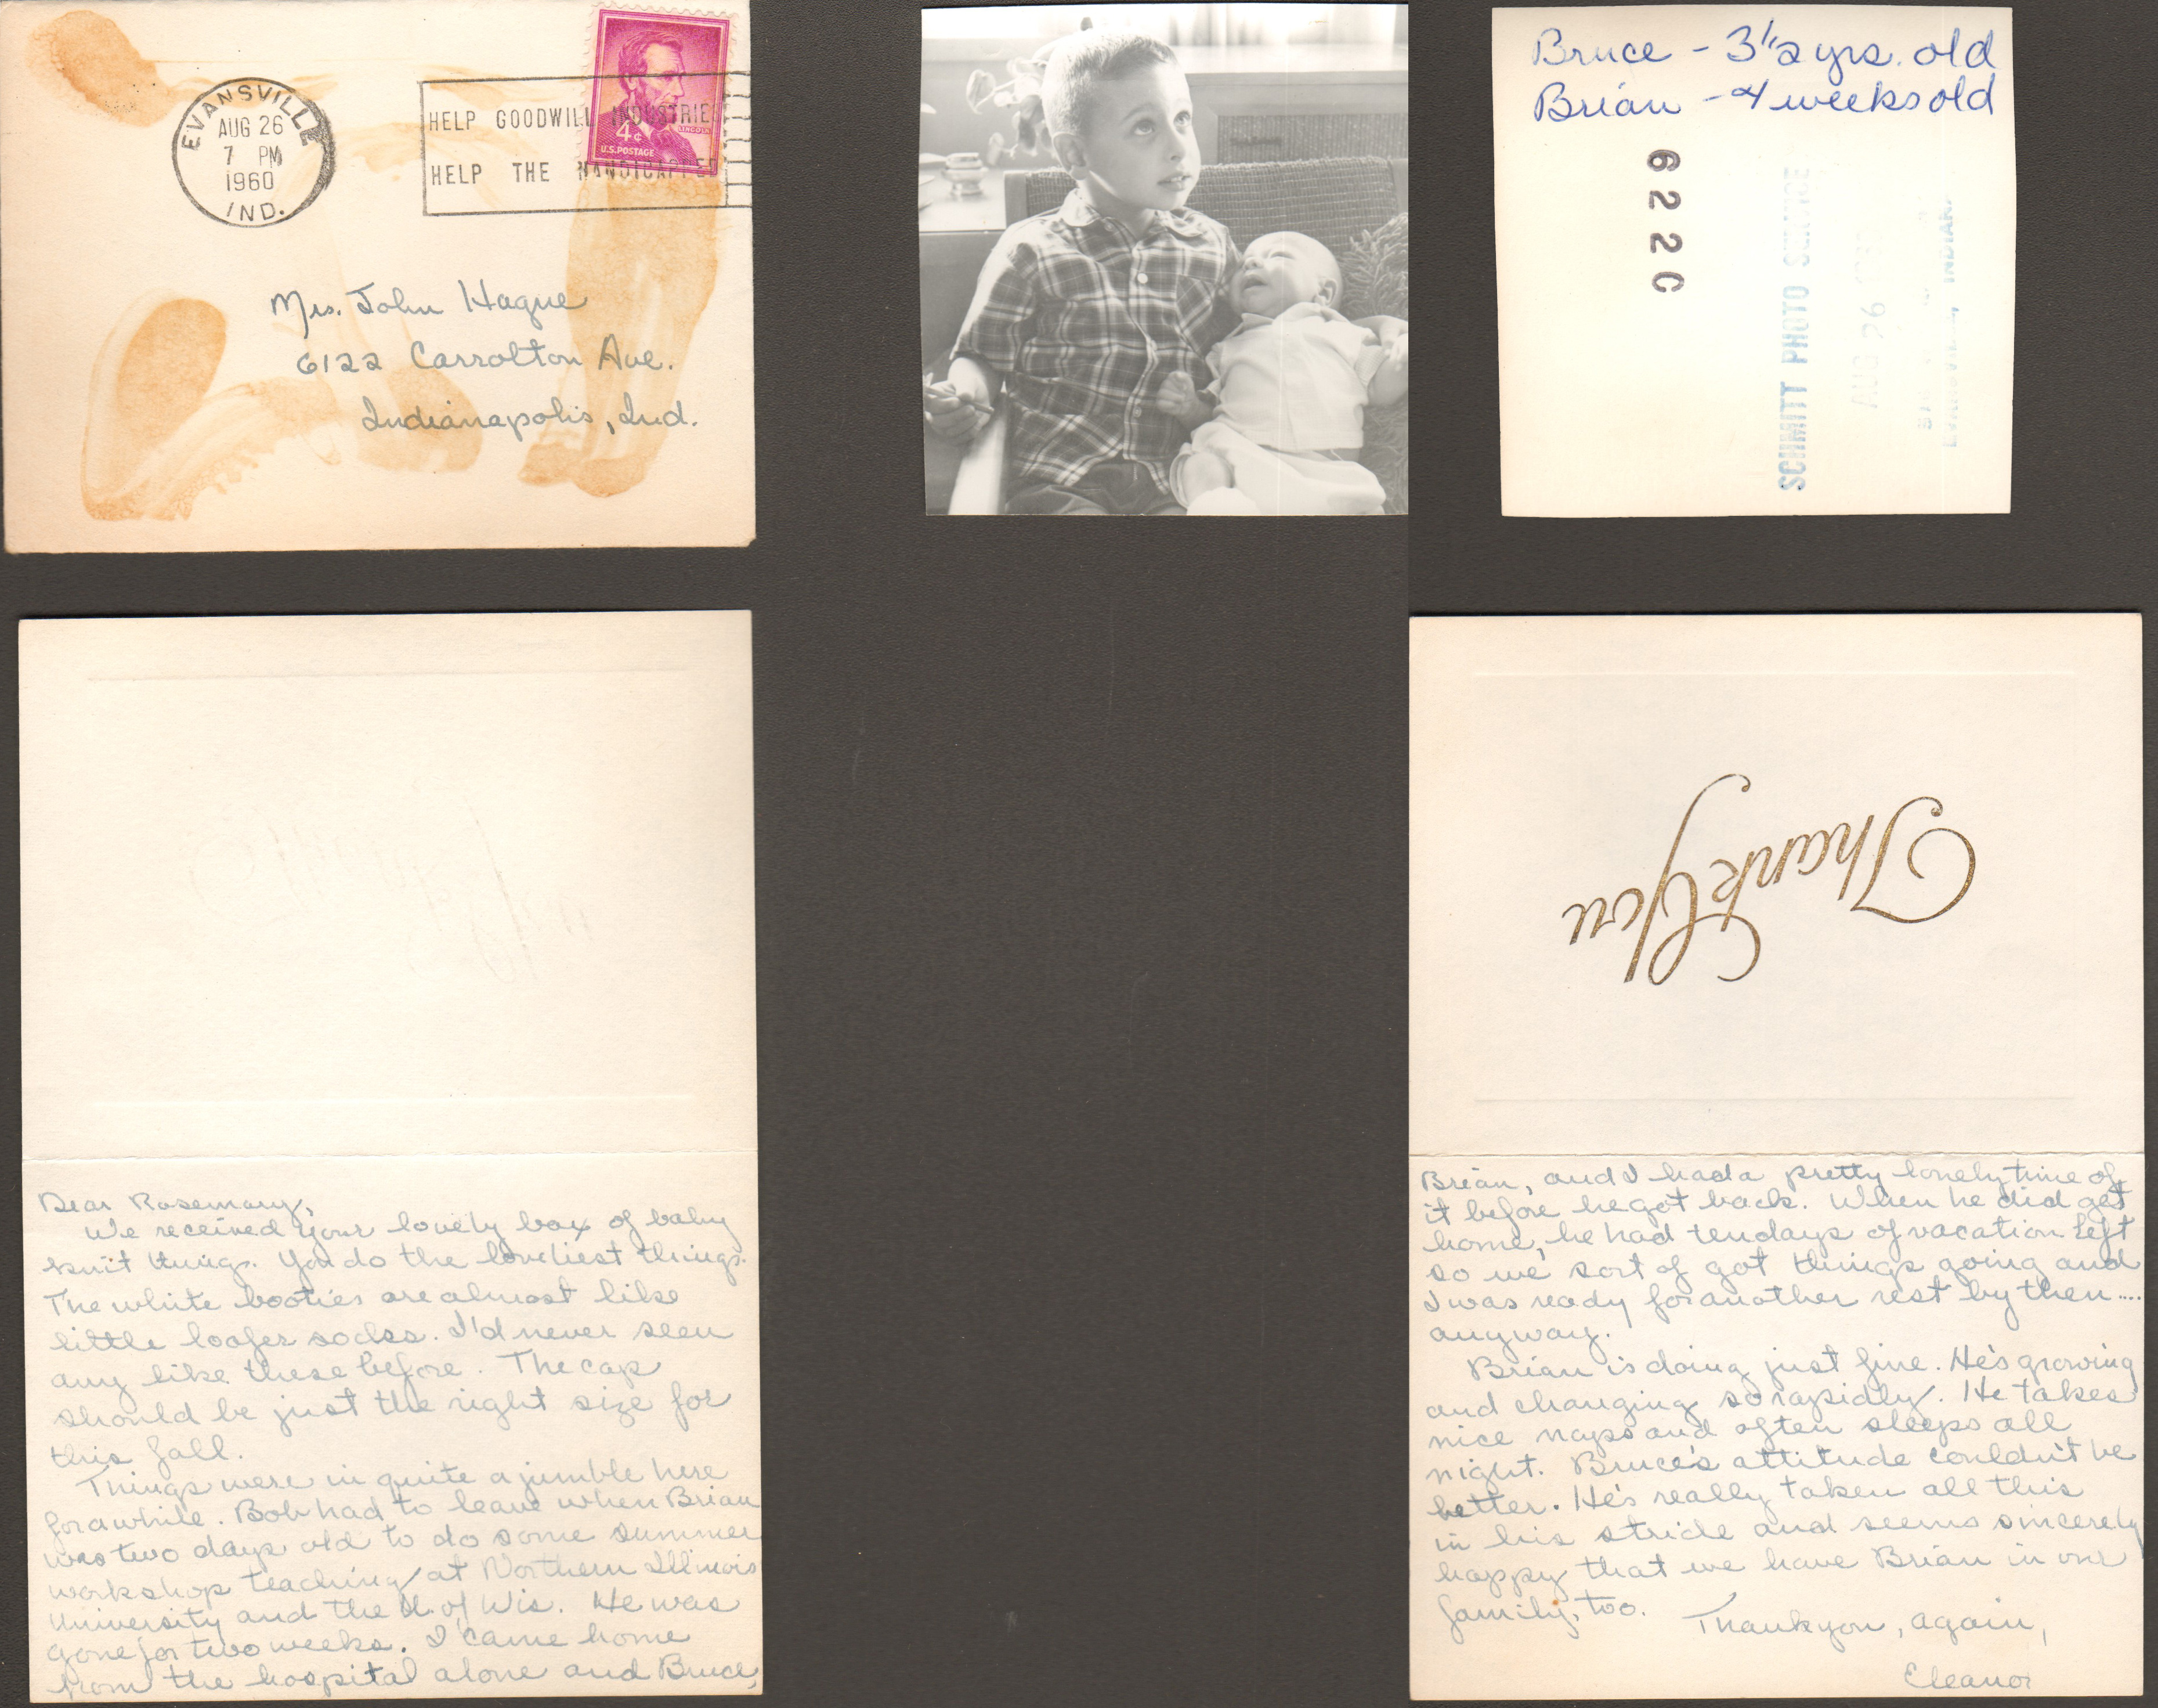 EVANSVILLE
AUG 26
7 PM
1960
IND.
HELP GOODWILL INDUSTRIES
HELP THE HANDICAPPED
4¢
LINCOLN
U.S. POSTAGE
Mrs. John Hague
6122 Carrolton Ave.
Indianapolis, Ind.
Bruce - 3 1/2 yrs. old
Brian - 4 weeks old
6220
SCHMITT PHOTO SERVICE
AUG 26
INDIANA
Thank You
Dear Rosemary,
We received your lovely box of baby
knit things. You do the loveliest things.
The white booties are almost like
little loafer socks. I'd never seen
any like these before. The cap
should be just the right size for
this fall.
Things were in quite a jumble here
for awhile. Bob had to leave when Brian
was two days old to do some summer
workshop teaching at Northern Illinois
University and the U. of Wis. He was
gone for two weeks. I came home
from the hospital alone and Bruce,
Brian, and I had a pretty lonely time of
it before he got back. When he did get
home, he had ten days of vacation left
so we sort of got things going and
I was ready for another rest by then....
anyway.
Brian is doing just fine. He's growing
and changing so rapidly. He takes
nice naps and often sleeps all
night. Bruce's attitude couldn't be
better. He's really taken all this
in his stride and seems sincerely
happy that we have Brian in our
family, too.
Thank you, again,
Eleanor